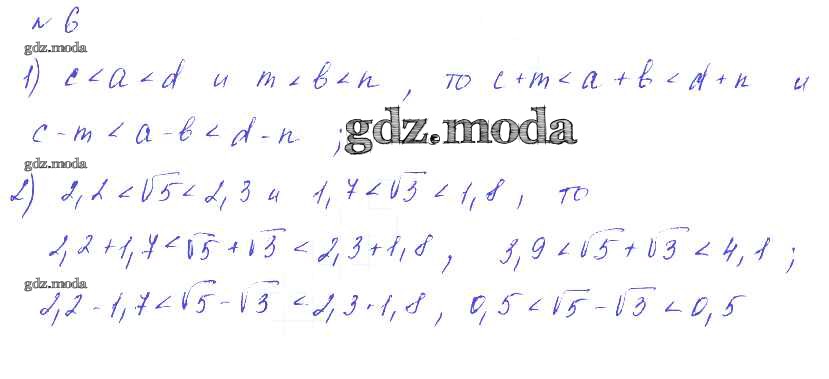 № 6
gdz.moda
1) c < a < d и m < b < n , то c + m < a + b < d + n и
c - m < a - b < d - n ; gdz.moda
gdz.moda
2) 2,2 < √5 < 2,3 и 1,7 < √3 < 1,8 , то
2,2 + 1,7 < √5 + √3 < 2,3 + 1,8 , 3,9 < √5 + √3 < 4,1 ;
gdz.moda
2,2 - 1,7 < √5 - √3 < 2,3 - 1,8 , 0,5 < √5 - √3 < 0,5